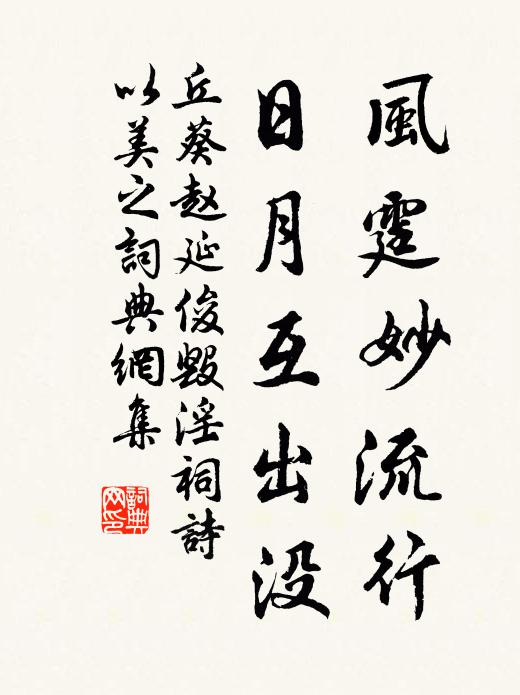 風霆妙流行
日月互出没
丘葵赵延俊毀淫祠詩
以美之詞典網集
詞典
网印